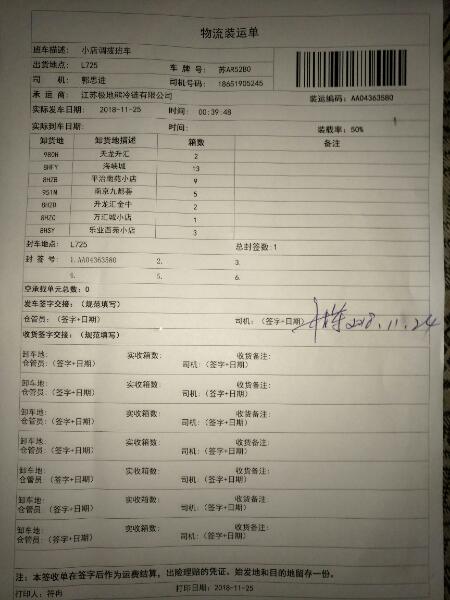 物流装运单
班车描述: 小店调拨班车
出货地点: L725 车 牌 号: 苏AR52B0
司 机: 郭思进 司机号码: 18651905245
承 运 商: 江苏极地熊冷链有限公司 装运编码: AA04363580
实际发车日期: 2018-11-25 时间: 00:39:48
实际到车日期: 时间: 装载率: 50%
卸货地 卸货地描述 箱数 备注
980H 天龙升汇 2
8HFY 海峡城 13
8HZB 平治南苑小店 9
951N 南京九都荟 5
8HZD 升龙汇金牛 2
8HZC 万汇城小店 1
8HSY 乐业西苑小店 3
封车地点: L725 总封签数: 1
封 签 号: 1.AA04363580 2. 3.
4. 5. 6.
空承载单元总数: 0
发车签字交接: (规范填写)
仓管员: (签字+日期) 司机: (签字+日期) 2018.11.24
收货签字交接: (规范填写)
卸车地: 实收箱数: 收货备注:
仓管员: (签字+日期) 司机: (签字+日期)
卸车地: 实收箱数: 收货备注:
仓管员: (签字+日期) 司机: (签字+日期)
卸车地: 实收箱数: 收货备注:
仓管员: (签字+日期) 司机: (签字+日期)
卸车地: 实收箱数: 收货备注:
仓管员: (签字+日期) 司机: (签字+日期)
卸车地: 实收箱数: 收货备注:
仓管员: (签字+日期) 司机: (签字+日期)
卸车地: 实收箱数: 收货备注:
仓管员: (签字+日期) 司机: (签字+日期)
注: 本签收单在签字后作为运费结算, 出险理赔的凭证。始发地和目的地留存一份。
打印人: 符冉 打印日期: 2018-11-25